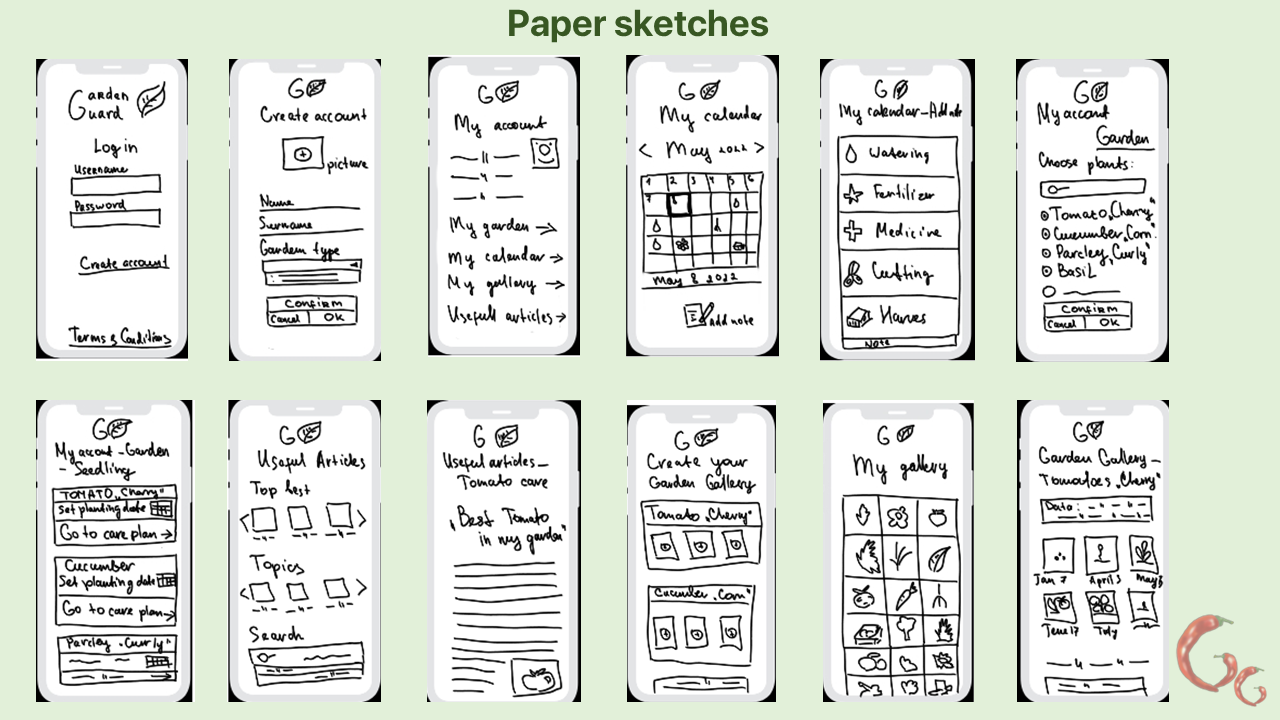 Paper sketches
Garden
Guard
Log in
Username
Password
Create account
Terms & Conditions
G
Create account
picture
Name
Surname
Garden type
Confirm
Cancel OK
G
My account
My garden →
My calendar →
My gallery →
Usefull articles →
G
My calendar
< May 2022 >
1 2 3 4 5 6
7 8
May 8 2022
Add note
G
My calendar - Add note
Watering
Fertilizer
Medicine
Cutting
Harves
Note
G
My account
Garden
Choose plants:
Tomato „Cherry"
Cucumber „Corn"
Parsley „Curly"
Basil
Confirm
Cancel OK
G
My accout - Garden
- Seedling
TOMATO „Cherry"
Set planting date
Go to care plan →
Cucumber
Set planting date
Go to care plan →
Parcley „Curly"
G
Useful Articles
Top best
< >
Topics
< >
Search
G
Useful articles -
Tomato care
„Best Tomato
in my garden"
G
Create your
Garden Gallery
Tomato „Cherry"
Cucumber „Corn"
G
My gallery
G
Garden Gallery -
Tomatoes „Cherry"
Data:
Jan 7 April 3 May 5
June 17 July
G G